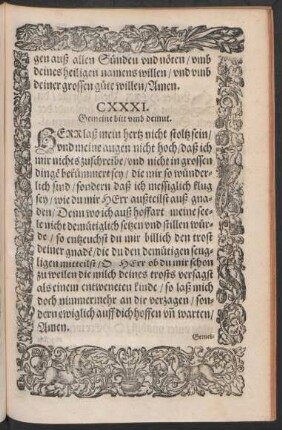 gen auß allen Sünden vnd nöten / vmb
deines heiligen namens willen / vnd vmb
deiner grossen güte willen / Amen.
CXXXI.
Gemeine bitt vmb demut.
HERR laß mein hertz nicht stoltz sein /
vnd meine augen nicht hoch / daß ich
mir nichts zuschreibe / vnd nicht in grossen
dinge bekümmert sey / die mir so wünder-
lich sind / sondern daß ich messiglich klug
sey / wie du mir HErr außteilst auß gna-
den / Denn wo ich auß hoffart meine see-
le nicht demütiglich setzen vnd stillen wür-
de / so entzeuchst du mir billich den trost
deiner gnadẽ / die du den demütigen
mitteilst / O HErr ob du mir schon
zu weilen die milch deines trosts versagst
als einem entweneten kinde / so laß mich
doch nimmermehr an dir verzagen / son-
dern ewiglich auff dich hoffen vñ warten /
Amen.
Gemei-